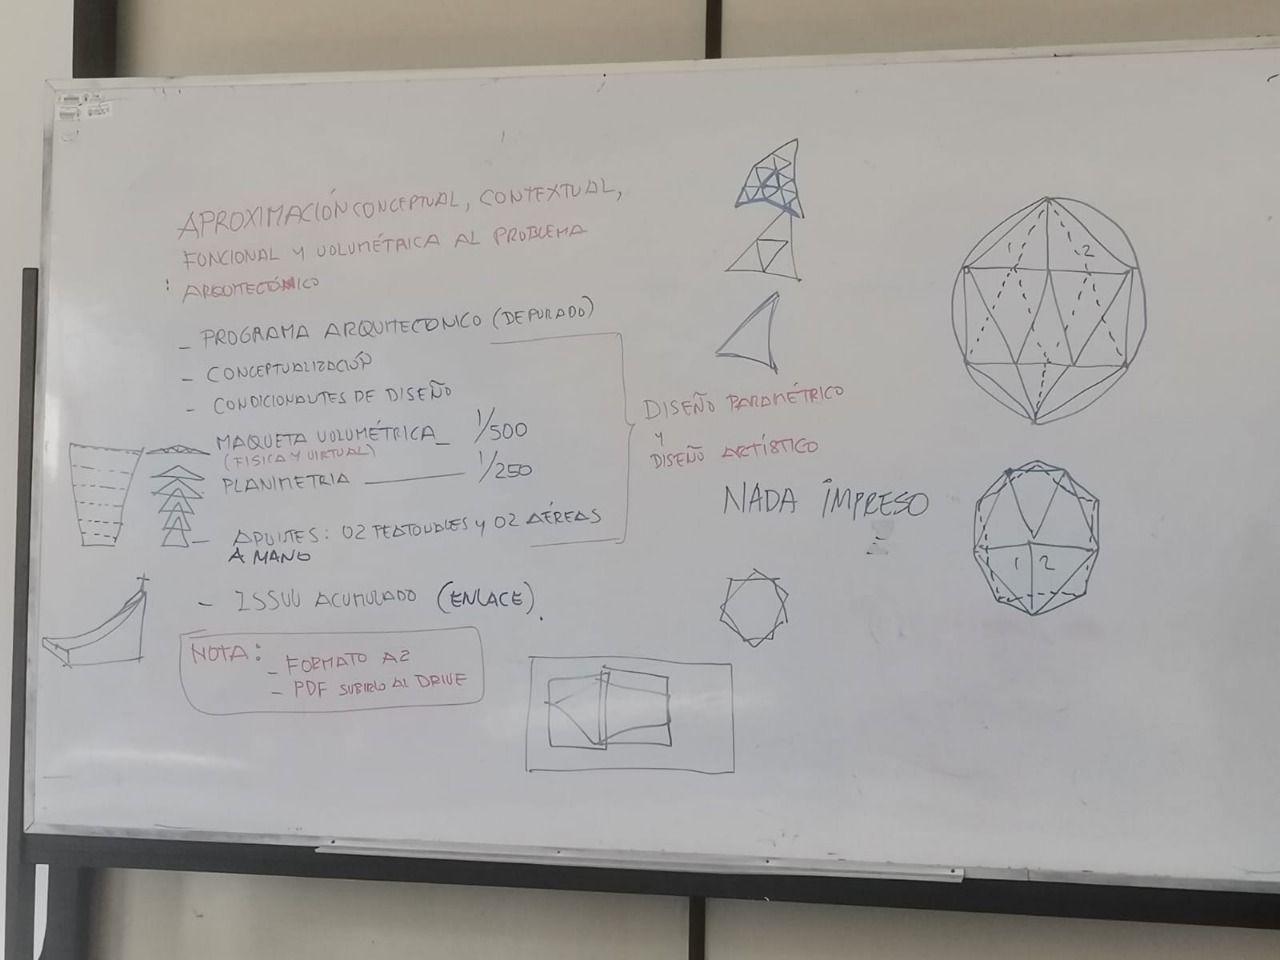 APROXIMACIÓN CONCEPTUAL, CONTEXTUAL,
FUNCIONAL Y VOLUMÉTRICA AL PROBLEMA
ARQUITECTÓNICO
- PROGRAMA ARQUITECONICO (DEPURADO)
- CONCEPTUALIZACIÓN
- CONDICIONANTES DE DISEÑO
MAQUETA VOLUMÉTRICA_ 1/500
(FISICA Y VIRTUAL)
PLANIMETRIA 1/250
- APUNTES: 02 PEATONALES y 02 AÉREAS
A MANO
- ISSUU ACUMULADO (ENLACE).
NOTA:
- FORMATO A2
- PDF SUBIRLO AL DRIVE
DISEÑO PARAMÉTRICO
Y
DISEÑO ARTÍSTICO
NADA IMPRESO
1 2
1 2